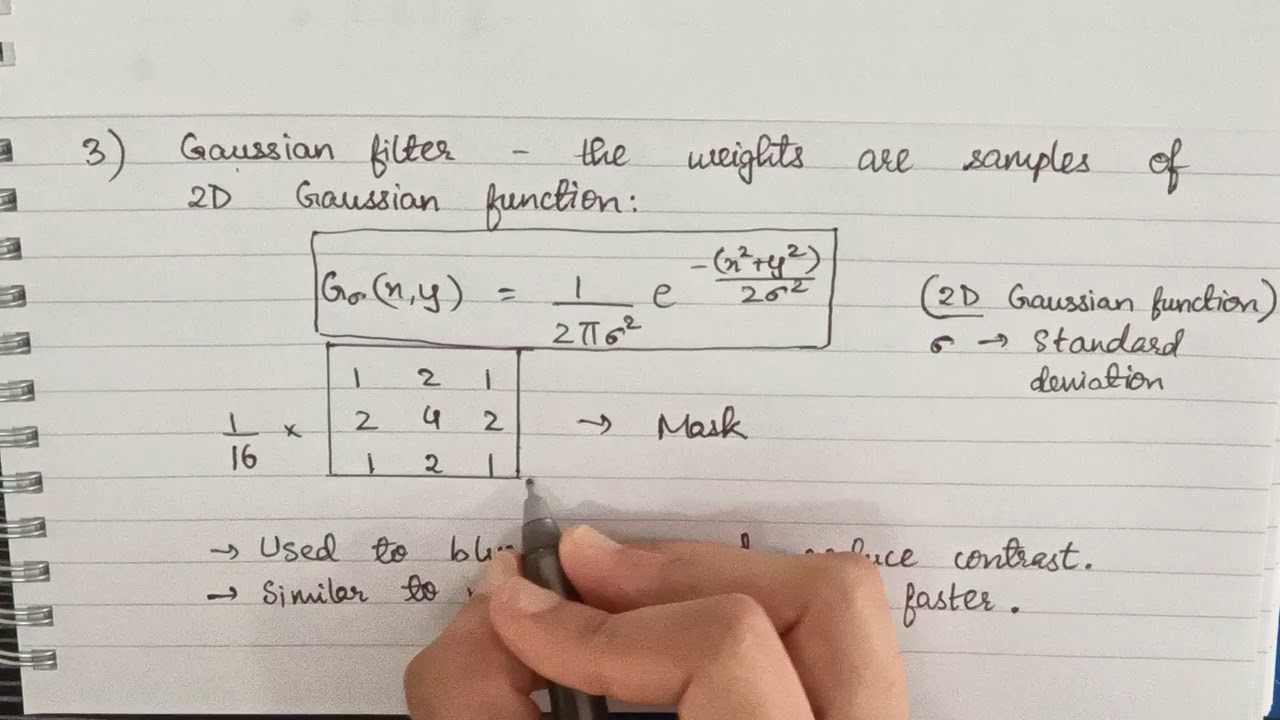 3) Gaussian filter - the weights are samples of
2D Gaussian function:
Gσ(x,y) = 1/2πσ² e^-(x²+y²)/2σ²
(2D Gaussian function)
σ → Standard
deviation
1/16 ×
1 2 1
2 4 2
1 2 1
→ Mask
→ Used to contrast.
→ Similar to faster.